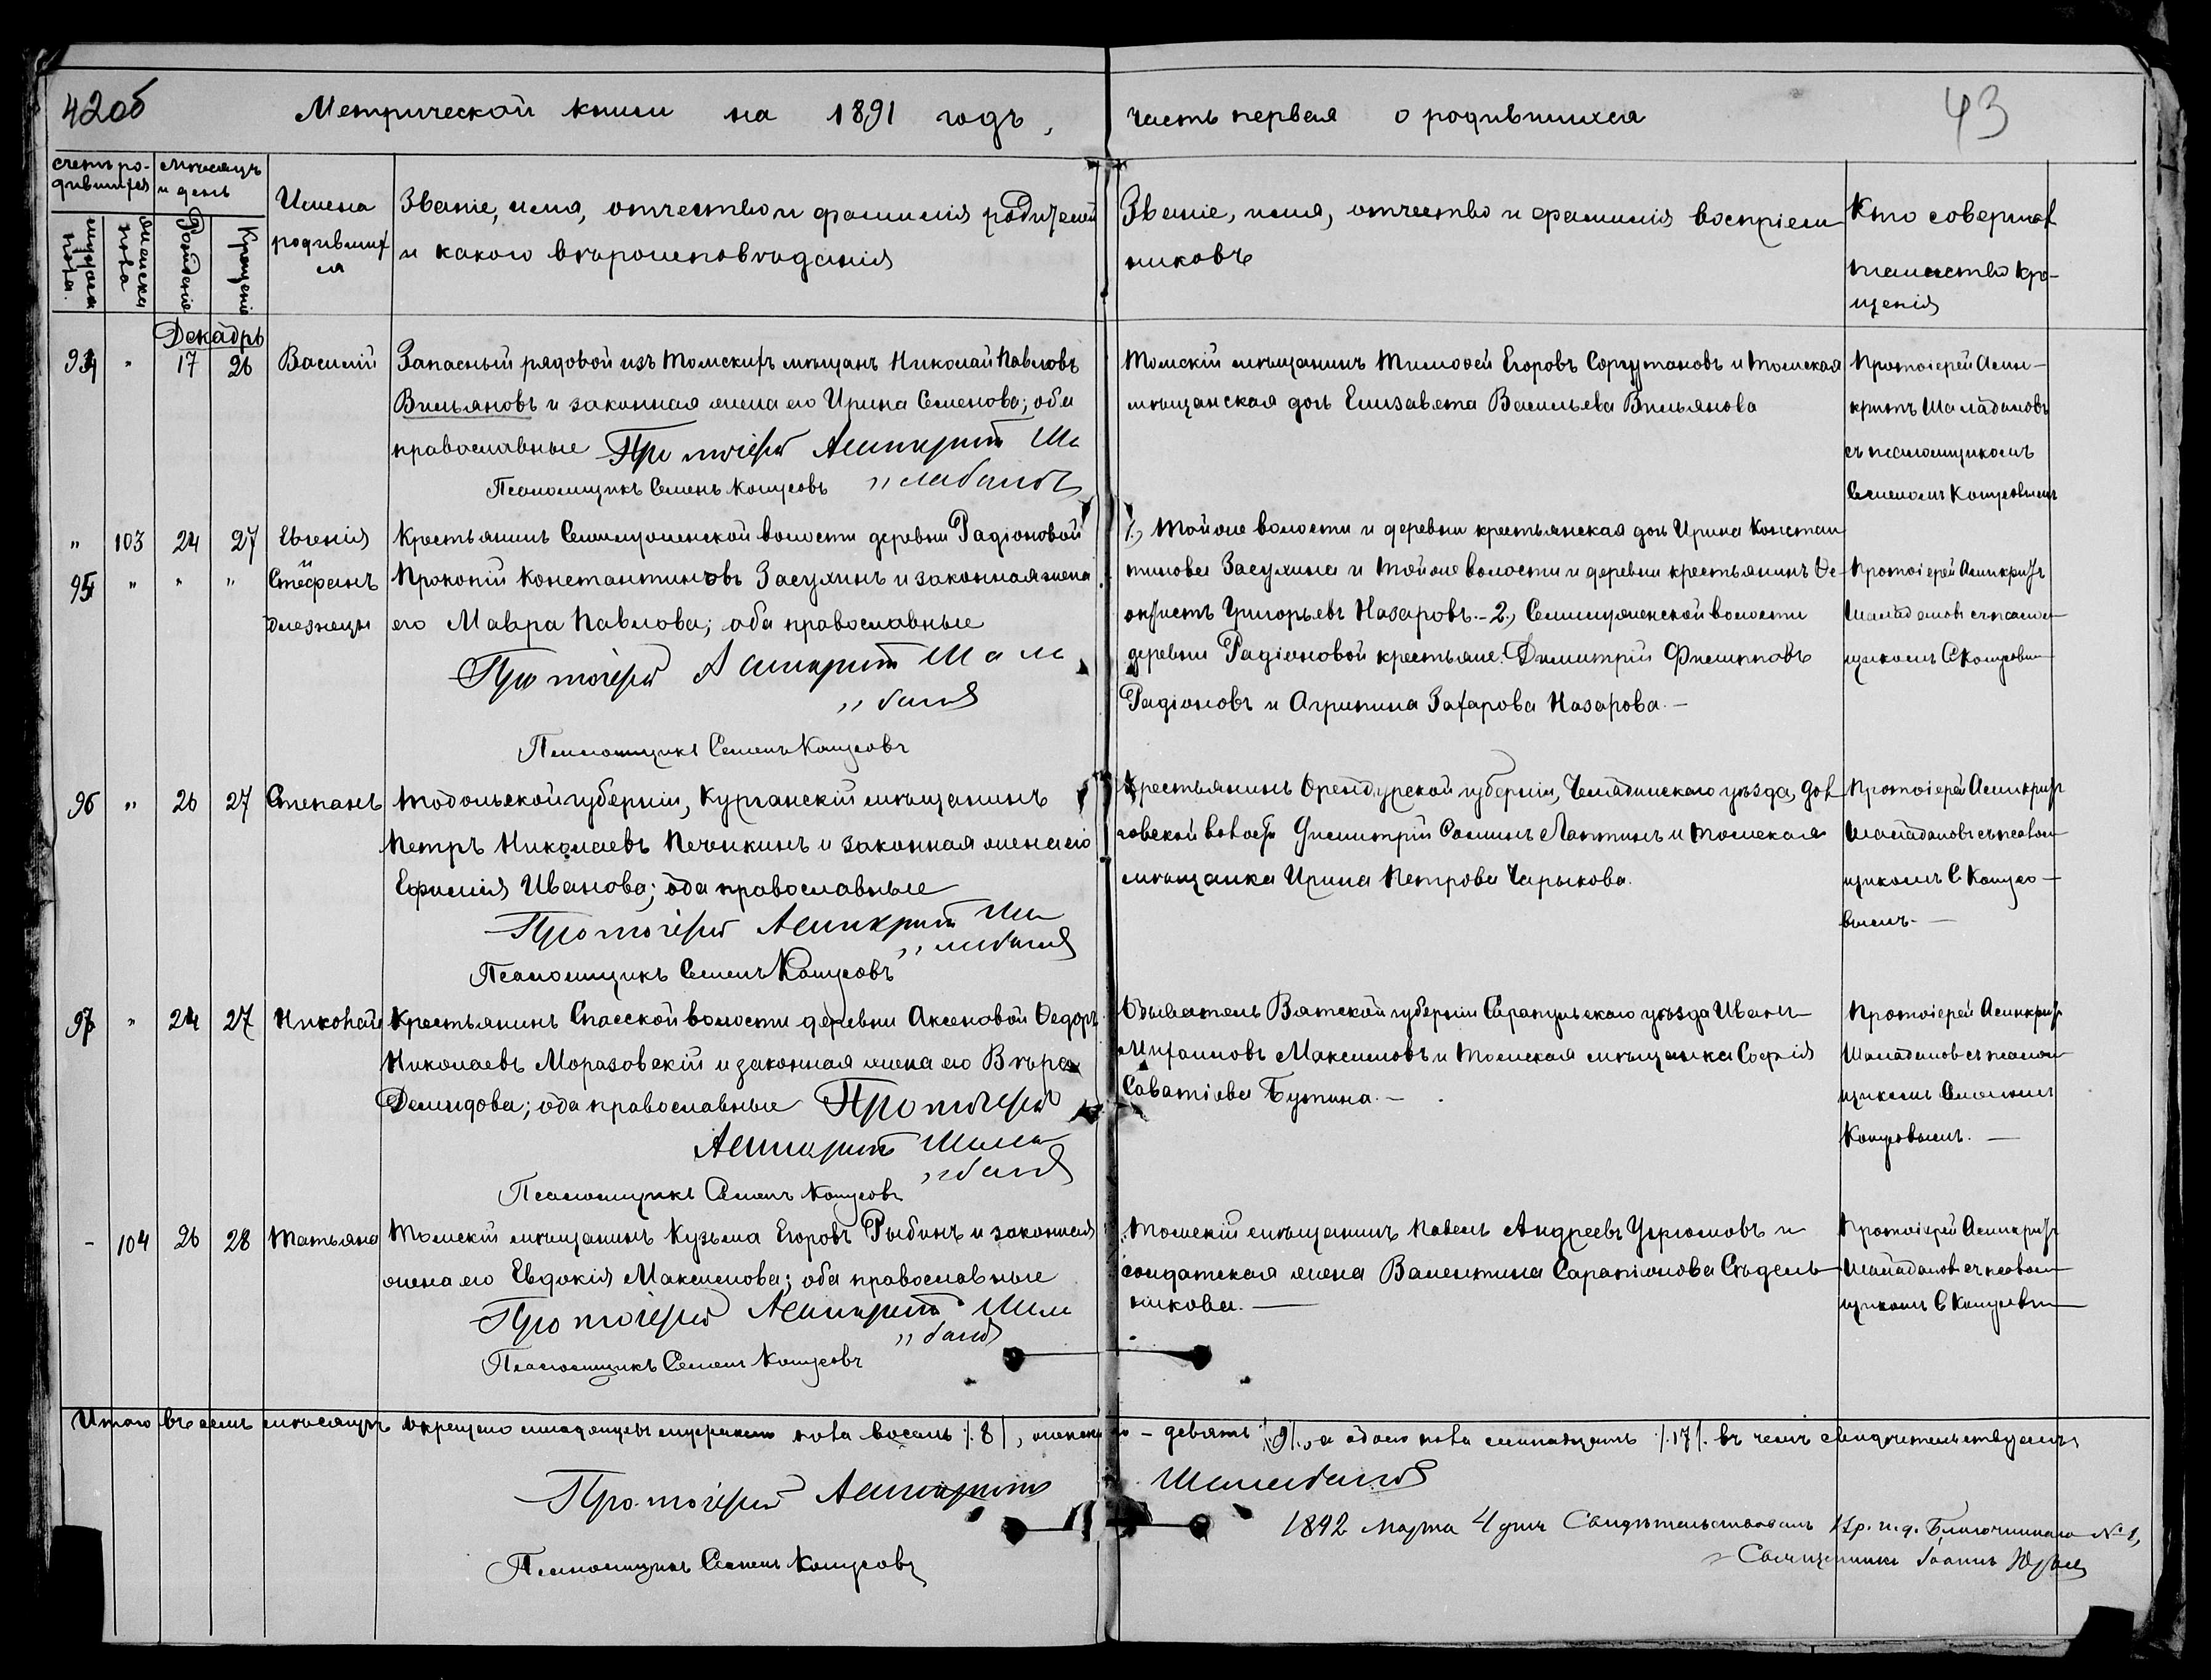 42об
Метрической книги на 1891 годъ,
часть первая о родившихся
43
Счетъ ро-
дившихся
Мѣсяцъ
и день
мужска
пола.
женска
пола
Рожденіе
Крещеніе
Имена
родивших
ся
Званіе, имя, отчество и фамилія родителей
и какого вѣроисповѣданія
Званіе, имя, отчество и фамилія воспріем
никовъ
Кто совершал
таинство кре-
щенія
Декабрь
94 " 17 26 Василій
Запасный рядовой изъ Томскихъ мѣщанъ Николай Павловъ
Вильяновъ и законная жена его Ирина Семенова; оба
православные Протоіерей Асинкритъ Ша
Псаломщикъ Семенъ Коцуровъ "лабановъ
Томскій мѣщанинъ Тимофей Егоровъ и Томская
мѣщанская дочь Елизавета Васильева Вильянова
Протоіерей Асин-
критъ Шалабановъ
съ псаломщикомъ
Семеномъ
" 103 24 27 Евгенія
95 " " " Стефанъ
близнецы
Крестьянинъ Семилуженской волости деревни Радіоновой
Прокопій Константиновъ Засухинъ и законная жена
его Мавра Павлова; оба православные
Протоіерей Асинкритъ Шала
"бановъ
Псаломщикъ Семенъ Коцуровъ
1, Той же волости и деревни крестьянская дочь Ирина Констан
тинова Засухина и той же волости и деревни крестьянинъ Фе
октистъ Григорьевъ Назаровъ.-2, Семилуженской волости
деревни Радіоновой крестьяне: Димитрій Филипповъ
Радіоновъ и Агрипина Захарова Назарова.-
Протоіерей Асинкритъ
Шалабановъ съ псалом
щикомъ С
96 " 26 27 Степанъ
Тобольской губерніи, Курганскій мѣщанинъ
Петръ Николаевъ Печникинъ и законная жена его
Ефимія Иванова; оба православные
Протоіерей Асинкритъ Ша
"лабановъ
Псаломщикъ Семенъ Коцуровъ
Крестьянинъ Оренбурской губерніи, Челябинскаго уѣзда,
Димитрій Лаптинъ и Томская
мѣщанка Ирина Петрова Чарыкова.
Протоіерей Асинкритъ
Шалабановъ съ псалом
щикомъ С Коцуро-
вымъ.-
97 " 24 27 Николай
Крестьянинъ Спасской волости деревни Аксеновой Федоръ
Николаевъ Моразовскій и законная жена его Вѣра
Демидова; оба православные Протоіерей
Асинкритъ Шала
"бановъ
Псаломщикъ Семенъ Коцуровъ
Обыватель Вятской губерніи Сарапульскаго уѣзда Иванъ
Михаиловъ Максимовъ и Томская мѣщанка Софія
Саватіева Бутина.-
Протоіерей Асинкритъ
Шалабановъ съ псалом
щикомъ Семеномъ
Коцуровымъ.-
- 104 26 28 Татьяна
Томскій мѣщанинъ Кузьма Егоровъ Рыбинъ и законная
жена его Евдокія Максимова; оба православные
Протоіерей Асинкритъ Шала
"бановъ
Псаломщикъ Семенъ Коцуровъ
Томскій мѣщанинъ Павелъ Андреевъ Угрюмовъ и
солдатская жена Валентина Сарапіонова Сѣдель
никова.-
Протоіерей Асинкритъ
Шалабановъ съ псалом
щикомъ С
Итого въ семъ мѣсяцѣ окрещено младенцевъ мужскаго пола восемь /.8/, женскаго - девять /9/., а обоего пола семнадцать /.17/. въ чемъ свидѣтельствуемъ
Протоіерей Асинкритъ Шалабановъ
Псаломщикъ Семенъ Коцуровъ
1892 Марта 4 дня Свидѣтельствовалъ и.д. Благочиннаго № 1,
Священникъ Іоаннъ